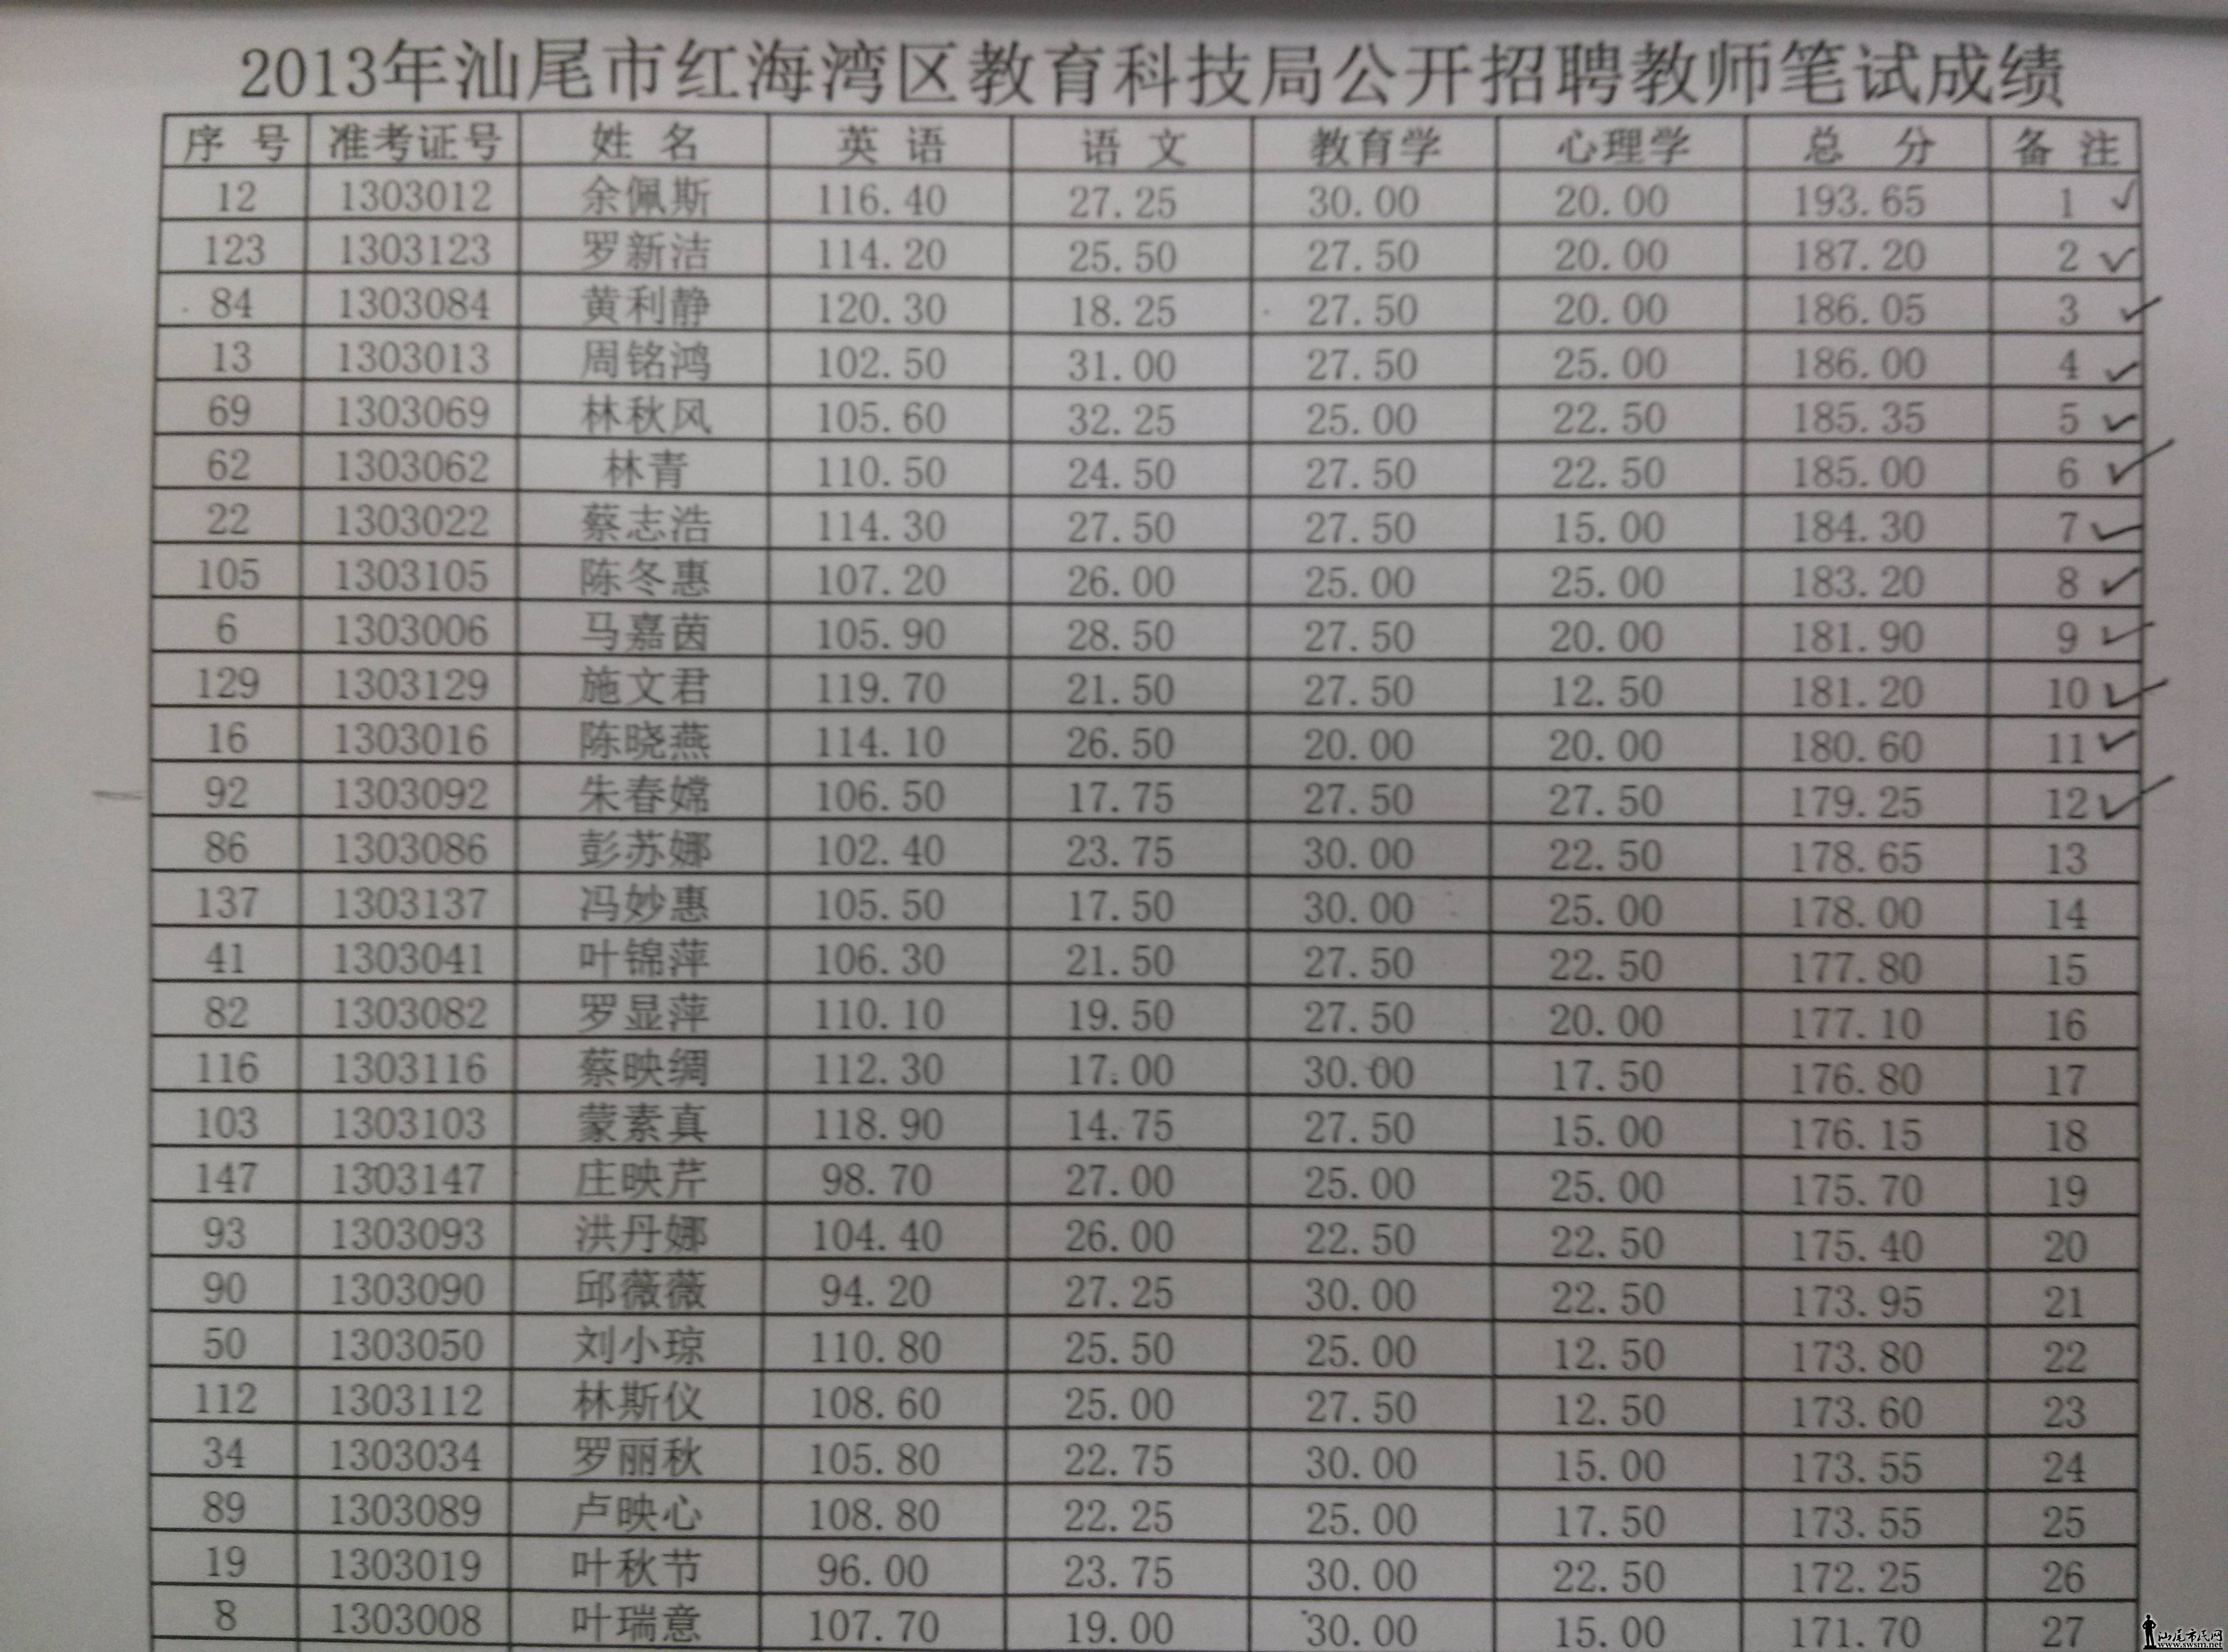 2013年汕尾市红海湾区教育科技局公开招聘教师笔试成绩
序 号 准考证号 姓 名 英 语 语 文 教育学 心理学 总 分 备 注
12 1303012 余佩斯 116.40 27.25 30.00 20.00 193.65 1 ✓
123 1303123 罗新洁 114.20 25.50 27.50 20.00 187.20 2 ✓
84 1303084 黄利静 120.30 18.25 27.50 20.00 186.05 3 ✓
13 1303013 周铭鸿 102.50 31.00 27.50 25.00 186.00 4 ✓
69 1303069 林秋风 105.60 32.25 25.00 22.50 185.35 5 ✓
62 1303062 林青 110.50 24.50 27.50 22.50 185.00 6 ✓
22 1303022 蔡志浩 114.30 27.50 27.50 15.00 184.30 7 ✓
105 1303105 陈冬惠 107.20 26.00 25.00 25.00 183.20 8 ✓
6 1303006 马嘉茵 105.90 28.50 27.50 20.00 181.90 9 ✓
129 1303129 施文君 119.70 21.50 27.50 12.50 181.20 10 ✓
16 1303016 陈晓燕 114.10 26.50 20.00 20.00 180.60 11 ✓
92 1303092 朱春嫦 106.50 17.75 27.50 27.50 179.25 12 ✓
86 1303086 彭苏娜 102.40 23.75 30.00 22.50 178.65 13
137 1303137 冯妙惠 105.50 17.50 30.00 25.00 178.00 14
41 1303041 叶锦萍 106.30 21.50 27.50 22.50 177.80 15
82 1303082 罗显萍 110.10 19.50 27.50 20.00 177.10 16
116 1303116 蔡映绸 112.30 17.00 30.00 17.50 176.80 17
103 1303103 蒙素真 118.90 14.75 27.50 15.00 176.15 18
147 1303147 庄映芹 98.70 27.00 25.00 25.00 175.70 19
93 1303093 洪丹娜 104.40 26.00 22.50 22.50 175.40 20
90 1303090 邱薇薇 94.20 27.25 30.00 22.50 173.95 21
50 1303050 刘小琼 110.80 25.50 25.00 12.50 173.80 22
112 1303112 林斯仪 108.60 25.00 27.50 12.50 173.60 23
34 1303034 罗丽秋 105.80 22.75 30.00 15.00 173.55 24
89 1303089 卢映心 108.80 22.25 25.00 17.50 173.55 25
19 1303019 叶秋节 96.00 23.75 30.00 22.50 172.25 26
8 1303008 叶瑞意 107.70 19.00 30.00 15.00 171.70 27
汕尾市民网
www.swsm.net